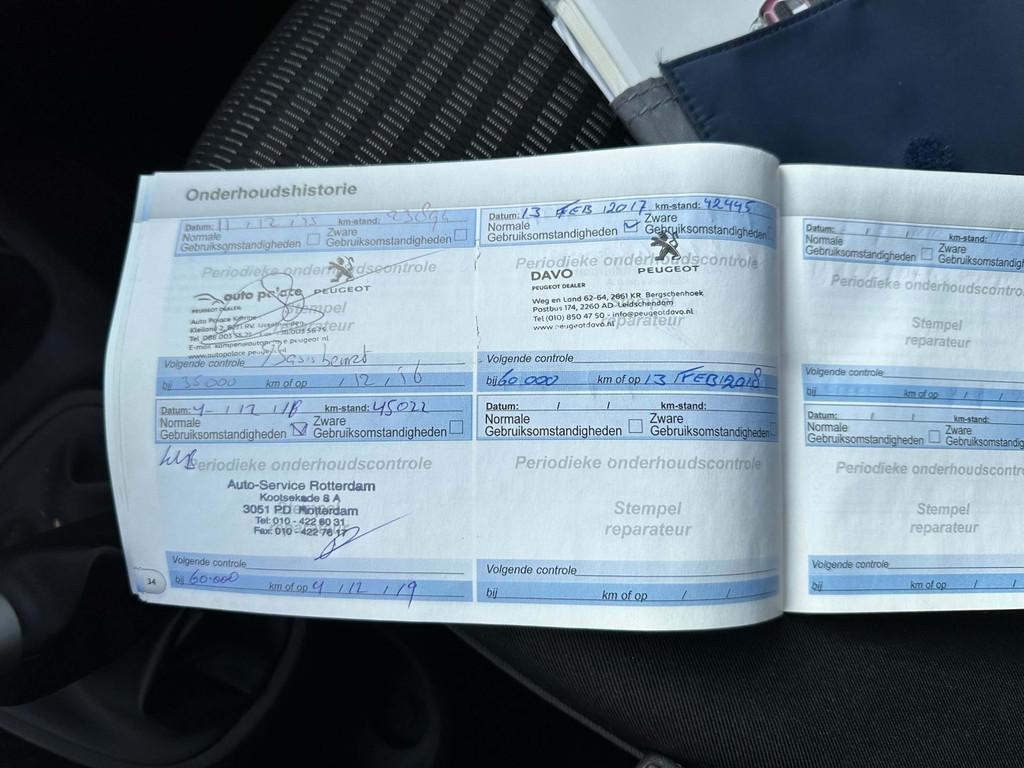 Onderhoudshistorie
Datum: 11 / 12 / 15 km-stand:
Normale Gebruiksomstandigheden Zware Gebruiksomstandigheden
Periodieke onderhoudscontrole
auto palace PEUGEOT
PEUGEOT DEALER
Stempel
reparateur
Volgende controle
bij 35 000 km of op / 12 / 16
Datum: 13 FEB 2017 km-stand: 42445
Normale Gebruiksomstandigheden Zware Gebruiksomstandigheden
Periodieke onderhoudscontrole
DAVO PEUGEOT
PEUGEOT DEALER
Weg en Land 62-64, 2661 KR Bergschenhoek
Postbus 174, 2260 AD Leidschendam
Tel (010) 850 47 50 - info@peugeotdavo.nl
www.peugeotdavo.nl
reparateur
Volgende controle
bij 60.000 km of op 13 FEB 2018
Datum: 4 / 12 / 18 km-stand: 45022
Normale Gebruiksomstandigheden Zware Gebruiksomstandigheden
Periodieke onderhoudscontrole
Auto-Service Rotterdam
Kootsekade 8 A
3051 PD Rotterdam
Tel: 010 - 422 60 31
Fax: 010 - 422 76 17
Volgende controle
bij 60.000 km of op 4 / 12 / 19
34
Datum: / / km-stand:
Normale Gebruiksomstandigheden Zware Gebruiksomstandigheden
Periodieke onderhoudscontrole
Stempel
reparateur
Volgende controle
bij km of op / /
Datum: / / km-stand:
Normale Gebruiksomstandigheden Zware
Periodieke
Stempel
reparateur
Volgende controle
bij km of op / /
Datum: / / km-stand:
Normale Gebruiksomstandigheden Zware
Periodieke
Stempel
reparateur
Volgende controle
bij km of op / /